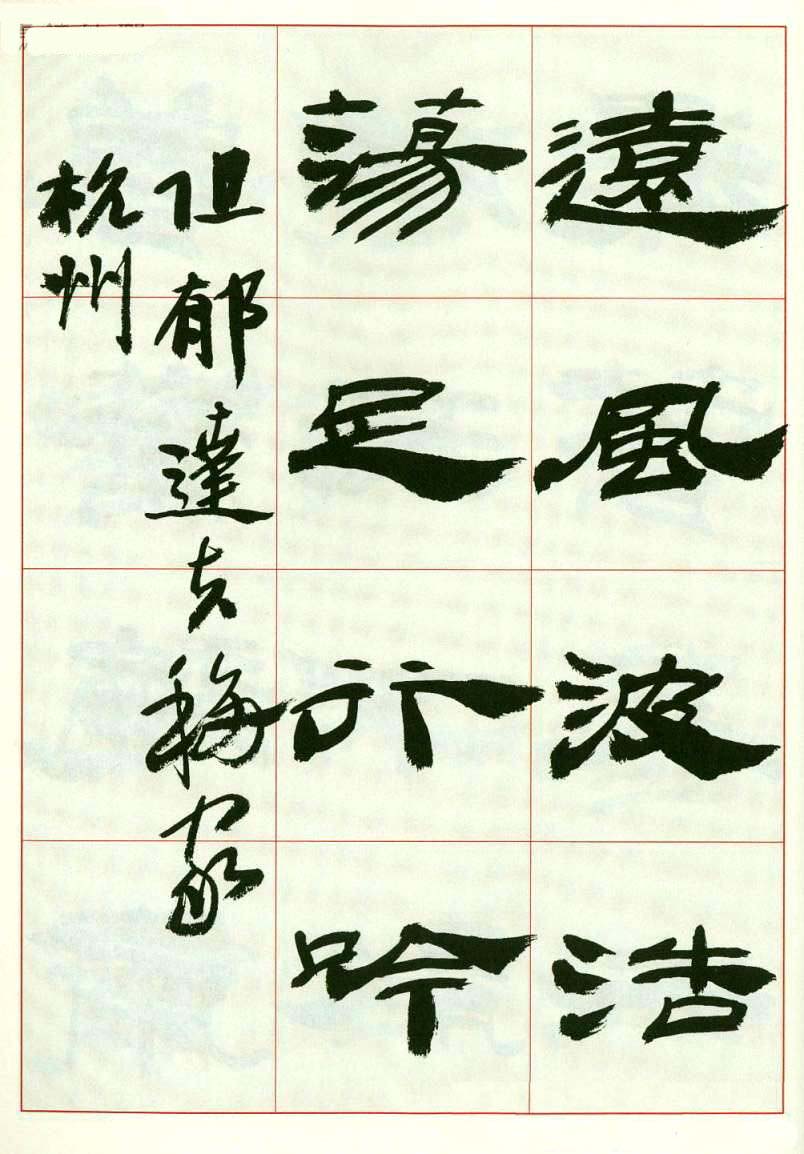 遠風波浩
蕩足行吟
阻郁達夫移家
杭州